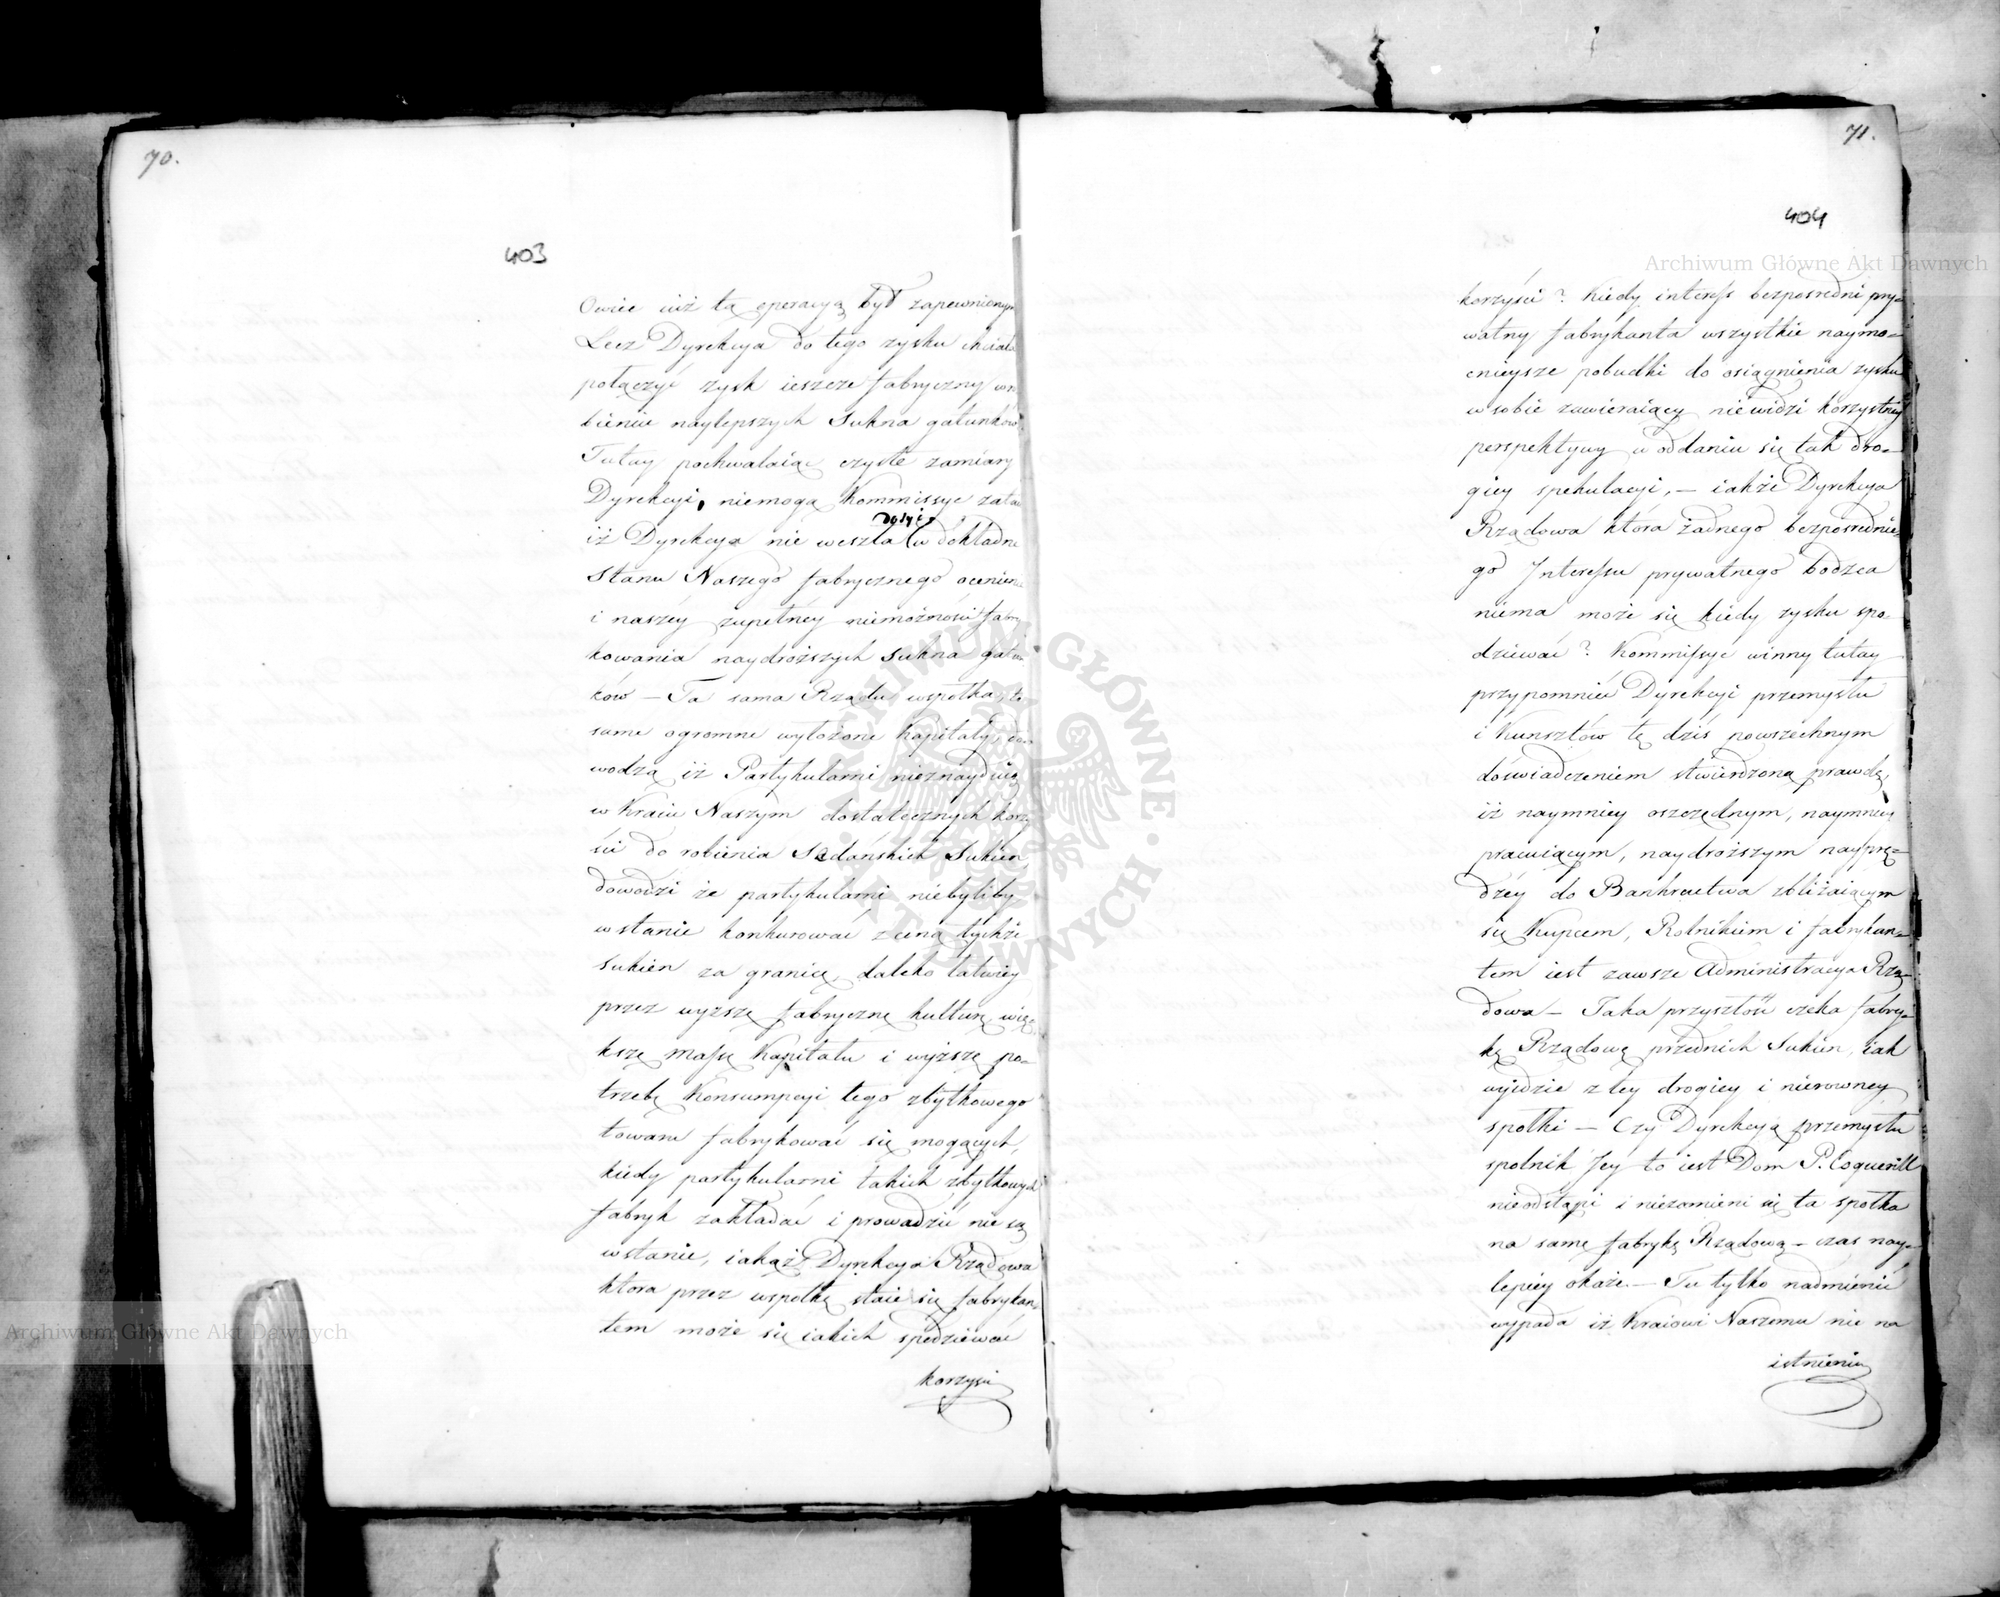 70.
403
Owiec iuż tą operacyą był zapewnionym
Lecz Dyrekcya do tego zysku chciała
połączyć zysk ieszcze fabryczny wro
bieniu naylepszych Sukna gatunków
Tutay pochwalaiąc czyste zamiary
Dyrekcyi, niemogą Kommissye
dosyć
iż Dyrekcya nie weszła w dokładne
Stanu Naszego fabrycznego ocenienie
i naszéy zupełnéy niemożności fabry
kowania naydroższych Sukna gatun
ków — Ta sama Rządu wspołka, te
same ogromne wyłożone Kapitały, do
wodzą iż Partykularni nieznayduią
w Kraiu Naszym dostatecznych korzy
ści do robienia Sedańskich Sukien,
dowodzi że partykularni niebyliby
wstanie konkurować z ceną tychże
Sukien za granicą, daleko łatwiey
przez wyższą fabryczną kulturę, wię-
kszą massę Kapitału i wyższą po-
trzebę Konsumpcyi tego zbytkowego
towaru fabrykować się mogących,
kiedy partykularni takich zbytkowych
fabryk zakładać i prowadzić nie są
wstanie, iakąż Dyrekcya Rządowa
która przez wspołkę staie się fabrykan-
tem może się iakich spodziewać
korzyści
71.
404
korzyści? Kiedy interess bezpośredni pry-
watny fabrykanta wszystkie naymo-
cnieysze pobudki do osiągnienia zysku
w sobie zawieraiący niewidzi korzystnéy
perspektywy w oddaniu się tak dro-
giey spekulacyi, — iakże Dyrekcya
Rządowa która żadnego bezpośrednie-
go Interessu prywatnego bodzca
niema może się kiedy zysku spo-
dziewać? Kommissye winny tutay
przypomnieć Dyrekcyi przemysłu
i Kunsztów tę dziś powszechnym
doświadczeniem stwierdzoną prawdę,
iż naymniey oszczędnym, naymniey
pracuiącym, naydroższym nayprę-
dzéy do Bankructwa zbliżaiącym
się Kupcem, Rolnikiem i fabrykan-
tem iest zawsze Administracya Rzą-
dowa — Taka przyszłość czeka fabry-
kę Rządową przednich Sukien, iak
wyidzie z tey drogiey i nierowney
społki — Czy Dyrekcyą przemysłu
spolnik Jéy to iest Dom P. Coquerill
nieodstąpi i niezamieni się ta społka
na samę fabrykę Rządową — czas nay-
lepiéy okaże. — Tu tylko nadmienić
wypada iż Kraiowi Naszemu nie na
istnieniu
Archiwum Główne Akt Dawnych
Archiwum Główne Akt Dawnych
ARCHIWUM GŁÓWNE AKT DAWNYCH